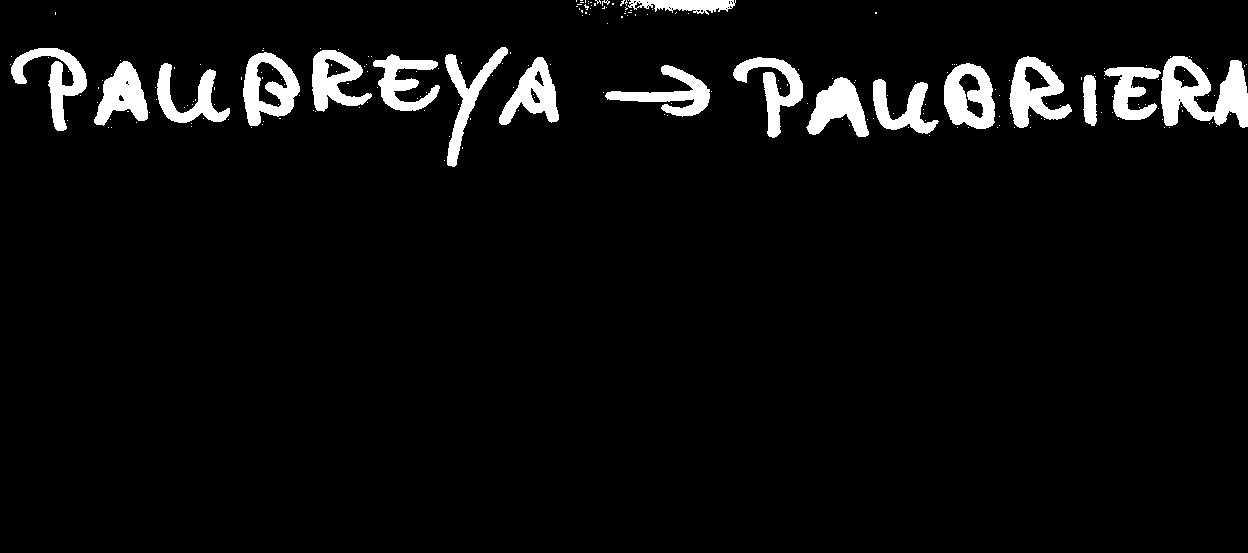 PAUBREYA → PAUBRIERA